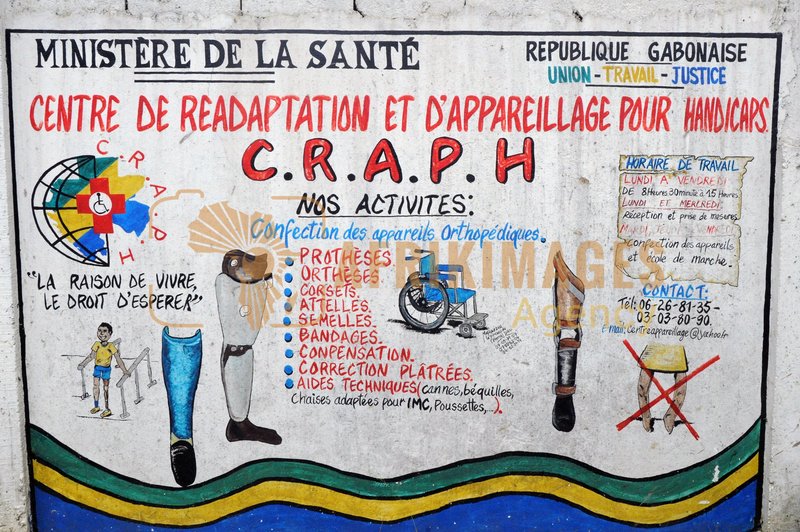 MINISTÈRE DE LA SANTÉ
REPUBLIQUE GABONAISE
UNION - TRAVAIL - JUSTICE
CENTRE DE READAPTATION ET D'APPAREILLAGE POUR HANDICAPS.
C.R.A.P.H
C.R.A.P.H
NOS ACTIVITES:
Confection des appareils Orthopédiques.
"LA RAISON DE VIVRE,
LE DROIT D'ESPERER"
• PROTHÈSES
• ORTHÈSES
• CORSETS.
• ATTELLES.
• SEMELLES.
• BANDAGES.
• CONPENSATION.
• CORRECTION PLÂTRÉES.
• AIDES TECHNIQUES (Cannes, béquilles,
Chaises adaptées pour IMC, Poussettes,...).
HORAIRE DE TRAVAIL
LUNDI A VENDREDI
DE 8Heures 30minute à 15Heures
LUNDI ET MERCREDI
Réception et prise de mesures
MARDI, JEUDI
Confection des appareils
et école de marche.
CONTACT:
Tél: 06-26-81-35-
03-03-80-90.
E-mail; Centreappareillage@yahoo.fr
AFRIKIMAGES
Agency